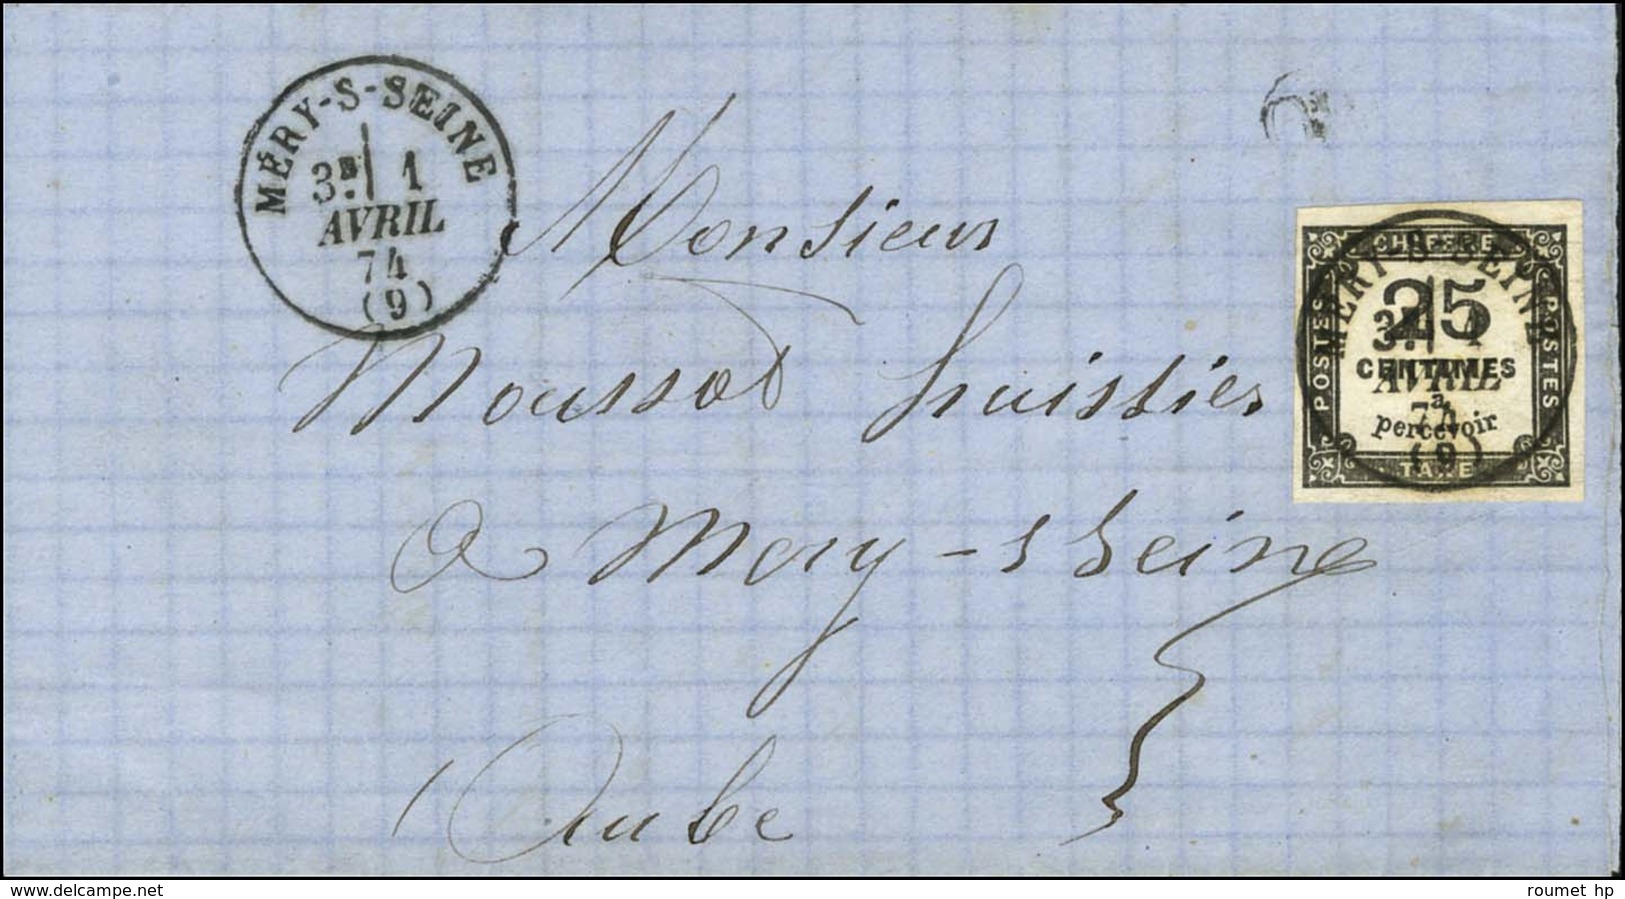 MÉRY-S-SEINE
3E 1
AVRIL
74
(9)
OR
Monsieur
Moussot huissier
a Mery-s Seine
Aube
CHIFFRE
POSTES
25
CENTIMES
à
percevoir
TAXE
POSTES
MÉRY-S-SEINE
3E 1
AVRIL
74
(9)
delcampe.net
roumet hp